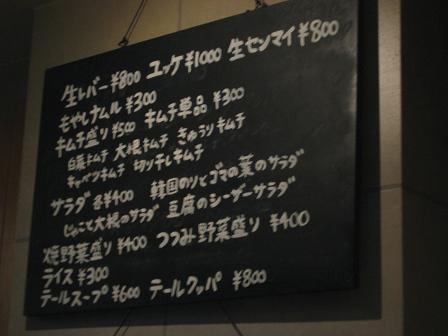 生レバー ¥800 ユッケ ¥1000 生センマイ ¥800
もやしナムル ¥300
キムチ盛り ¥500 キムチ単品 ¥300
白菜キムチ 大根キムチ きゅうりキムチ
キャベツキムチ 切り干しキムチ
サラダ 各¥400 韓国のりとゴマの葉のサラダ
じゃこと大根のサラダ 豆腐のシーザーサラダ
焼野菜盛り ¥400 つつみ野菜盛り ¥400
ライス ¥300
テールスープ ¥600 テールクッパ ¥800